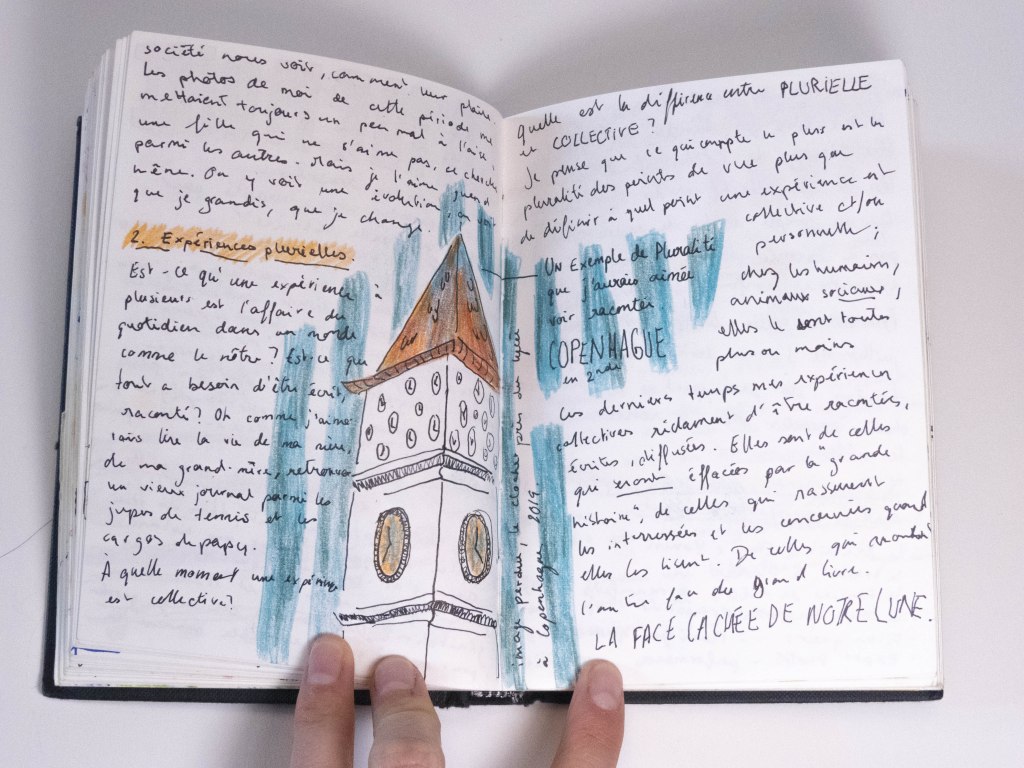 société nous voir, comment leur plaire
les photos de moi de cette période me
mettaient toujours un peu mal à l'aise
une fille qui ne s'aime pas, se cherche
parmi les autres. Mais je l'aime quand
même. On y voit une évolution, on
que je grandis, que je change.
2. Expériences plurielles.
Est-ce qu'une expérience à
plusieurs est l'affaire du
quotidien dans un monde
comme le nôtre ? Est-ce que
tout a besoin d'être écrit,
raconté ? Oh comme j'aime-
rais lire la vie de ma mère,
de ma grand-mère, retrouver
un vieux journal parmi les
jupes de tennis et les
cargos de papy.
À quelle moment une expérience
est collective ?
image perdue, le clocher près du lycée
à Copenhague, 2019.
quelle est la différence entre PLURIELLE
et COLLECTIVE ?
Je pense que ce qui compte le plus est la
pluralité des points de vue plus que
de définir à quel point une expérience est
collective et/ou
personnelle ;
chez les humains,
animaux sociaux,
elles le sont toutes
plus ou moins
UN Exemple de Pluralité
que j'aurais aimée
voir racontée
COPENHAGUE
en 2nde
Ces derniers temps mes expériences
collectives réclament d'être racontées,
écrites, diffusées. Elles sont de celles
qui seront éffacées par la "grande
histoire", de celles qui rassemblent
les interessées et les concernées quand
elles les lisent. De celles qui
l'autre face du grand livre.
LA FACE CACHÉE DE NOTRE LUNE.